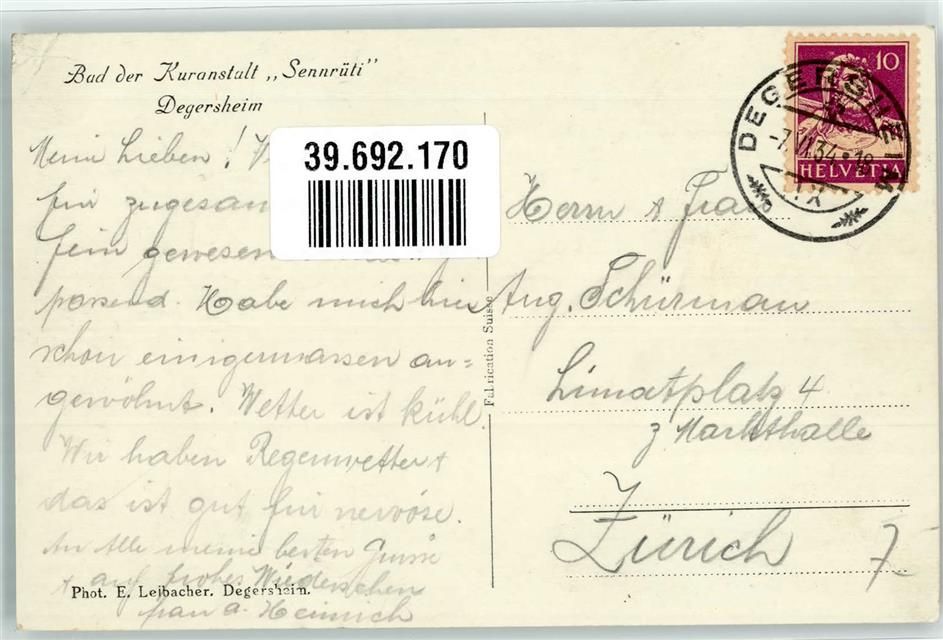 Bad der Kuranstalt „Sennrüti"
Degersheim
Meine Lieben!
für zugesan
fein gewesen
passend. Habe mich hier
schon einigermassen an=
gewöhnt. Wetter ist kühl.
Wir haben Regenwetter +
das ist gut für nervöse.
An Alle meine besten Grüsse
+ auf frohes Wiedersehen
Frau A. Heinrich
Phot. E. Leibacher. Degersheim.
39.692.170
Fabrication Suisse
10
HELVETIA
DEGERSHEIM
Herrn & Frau
Aug. Schürman
Limatplatz 4
z Markthalle
Zürich
7-